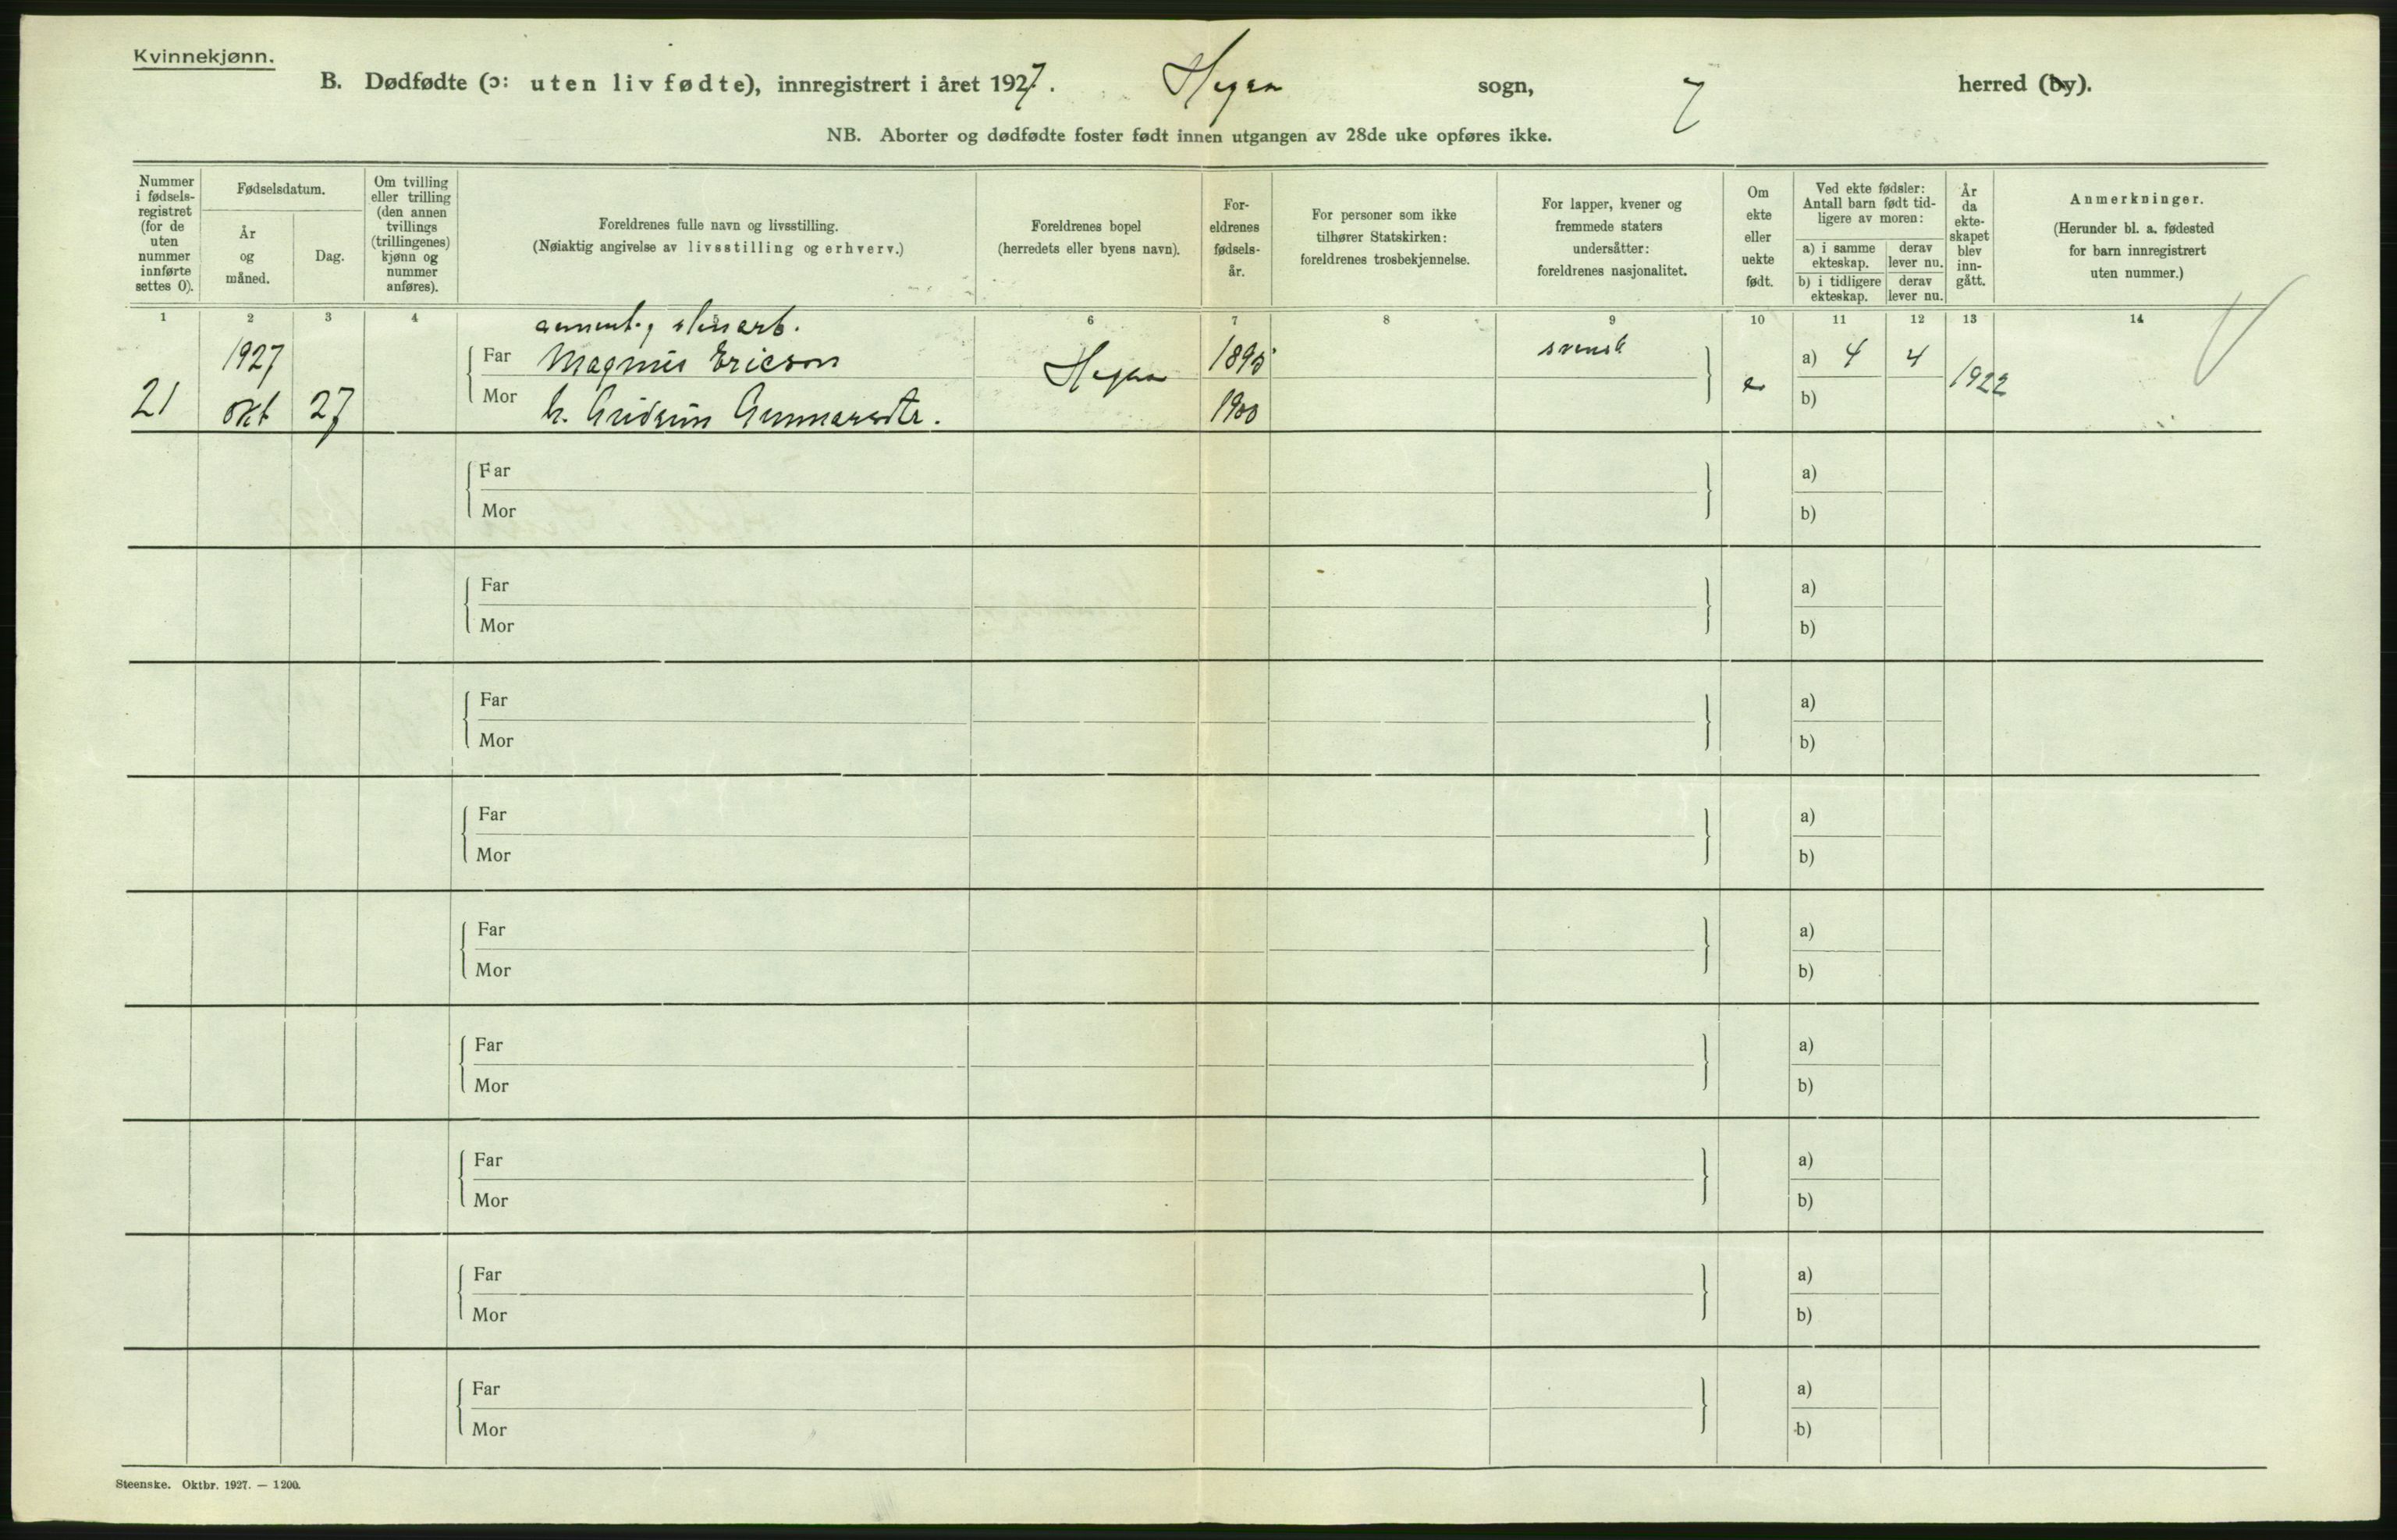 Kvinnekjønn.
B. Dødfødte (ɔ: uten liv fødte), innregistrert i året 1927. Hegra sogn, herred (by).
NB. Aborter og dødfødte foster født innen utgangen av 28de uke opføres ikke.
Nummer i fødsels-registret (for de uten nummer innførte settes 0).
Fødselsdatum.
År og måned.
Dag.
Om tvilling eller trilling (den annen tvillings (trillingenes) kjønn og nummer anføres).
Foreldrenes fulle navn og livsstilling.
(Nøiaktig angivelse av livsstilling og erhverv.)
Foreldrenes bopel
(herredets eller byens navn).
For-eldrenes fødsels-år.
For personer som ikke tilhører Statskirken: foreldrenes trosbekjennelse.
For lapper, kvener og fremmede staters undersåtter: foreldrenes nasjonalitet.
Om ekte eller uekte født.
Ved ekte fødsler: Antall barn født tid-ligere av moren:
a) i samme ekteskap.
derav lever nu.
b) i tidligere ekteskap.
derav lever nu.
År da ekte-skapet blev inn-gått.
Anmerkninger.
(Herunder bl. a. fødested for barn innregistrert uten nummer.)
1 2 3 4 6 7 8 9 10 11 12 13 14
stenarb.
1927 Far Magnus Ericson Hegra 1895 svensk a) 4 4
21 okt 27 Mor h. Gunnarsdtr. 1900 e b) 1922
Far a)
Mor b)
Far a)
Mor b)
Far a)
Mor b)
Far a)
Mor b)
Far a)
Mor b)
Far a)
Mor b)
Far a)
Mor b)
Far a)
Mor b)
Far a)
Mor b)
Steenske. Oktbr. 1927. — 1200.